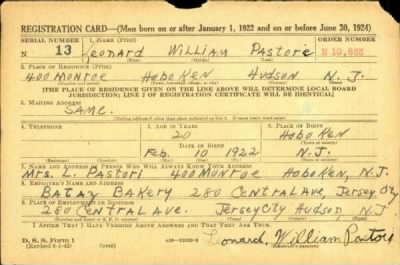 REGISTRATION CARD—(Men born on or after January 1, 1922 and on or before June 30, 1924)
SERIAL NUMBER 1. NAME (Print) ORDER NUMBER
N 13 Leonard William Pastore N 10,883
(First) (Middle) (Last)
2. PLACE OF RESIDENCE (Print)
400 MONROE HOBOKEN HUDSON N.J.
[THE PLACE OF RESIDENCE GIVEN ON THE LINE ABOVE WILL DETERMINE LOCAL BOARD
JURISDICTION; LINE 2 OF REGISTRATION CERTIFICATE WILL BE IDENTICAL]
3. MAILING ADDRESS
SAME.
4. TELEPHONE 5. AGE IN YEARS 6. PLACE OF BIRTH
20 HOBOKEN
DATE OF BIRTH
Feb. 10 1922 N.J.
7. NAME AND ADDRESS OF PERSON WHO WILL ALWAYS KNOW YOUR ADDRESS
Mrs. L. Pastori 400 MONROE HOBOKEN, N.J.
8. EMPLOYER'S NAME AND ADDRESS
BATAZ BAKERY 280 CENTRAL AVE, Jersey City
9. PLACE OF EMPLOYMENT OR BUSINESS
280 CENTRAL AVE. JERSEY CITY HUDSON N.J.
I AFFIRM THAT I HAVE VERIFIED ABOVE ANSWERS AND THAT THEY ARE TRUE.
D. S. S. Form 1
(Revised 6-1-42) (over) Leonard William Pastore